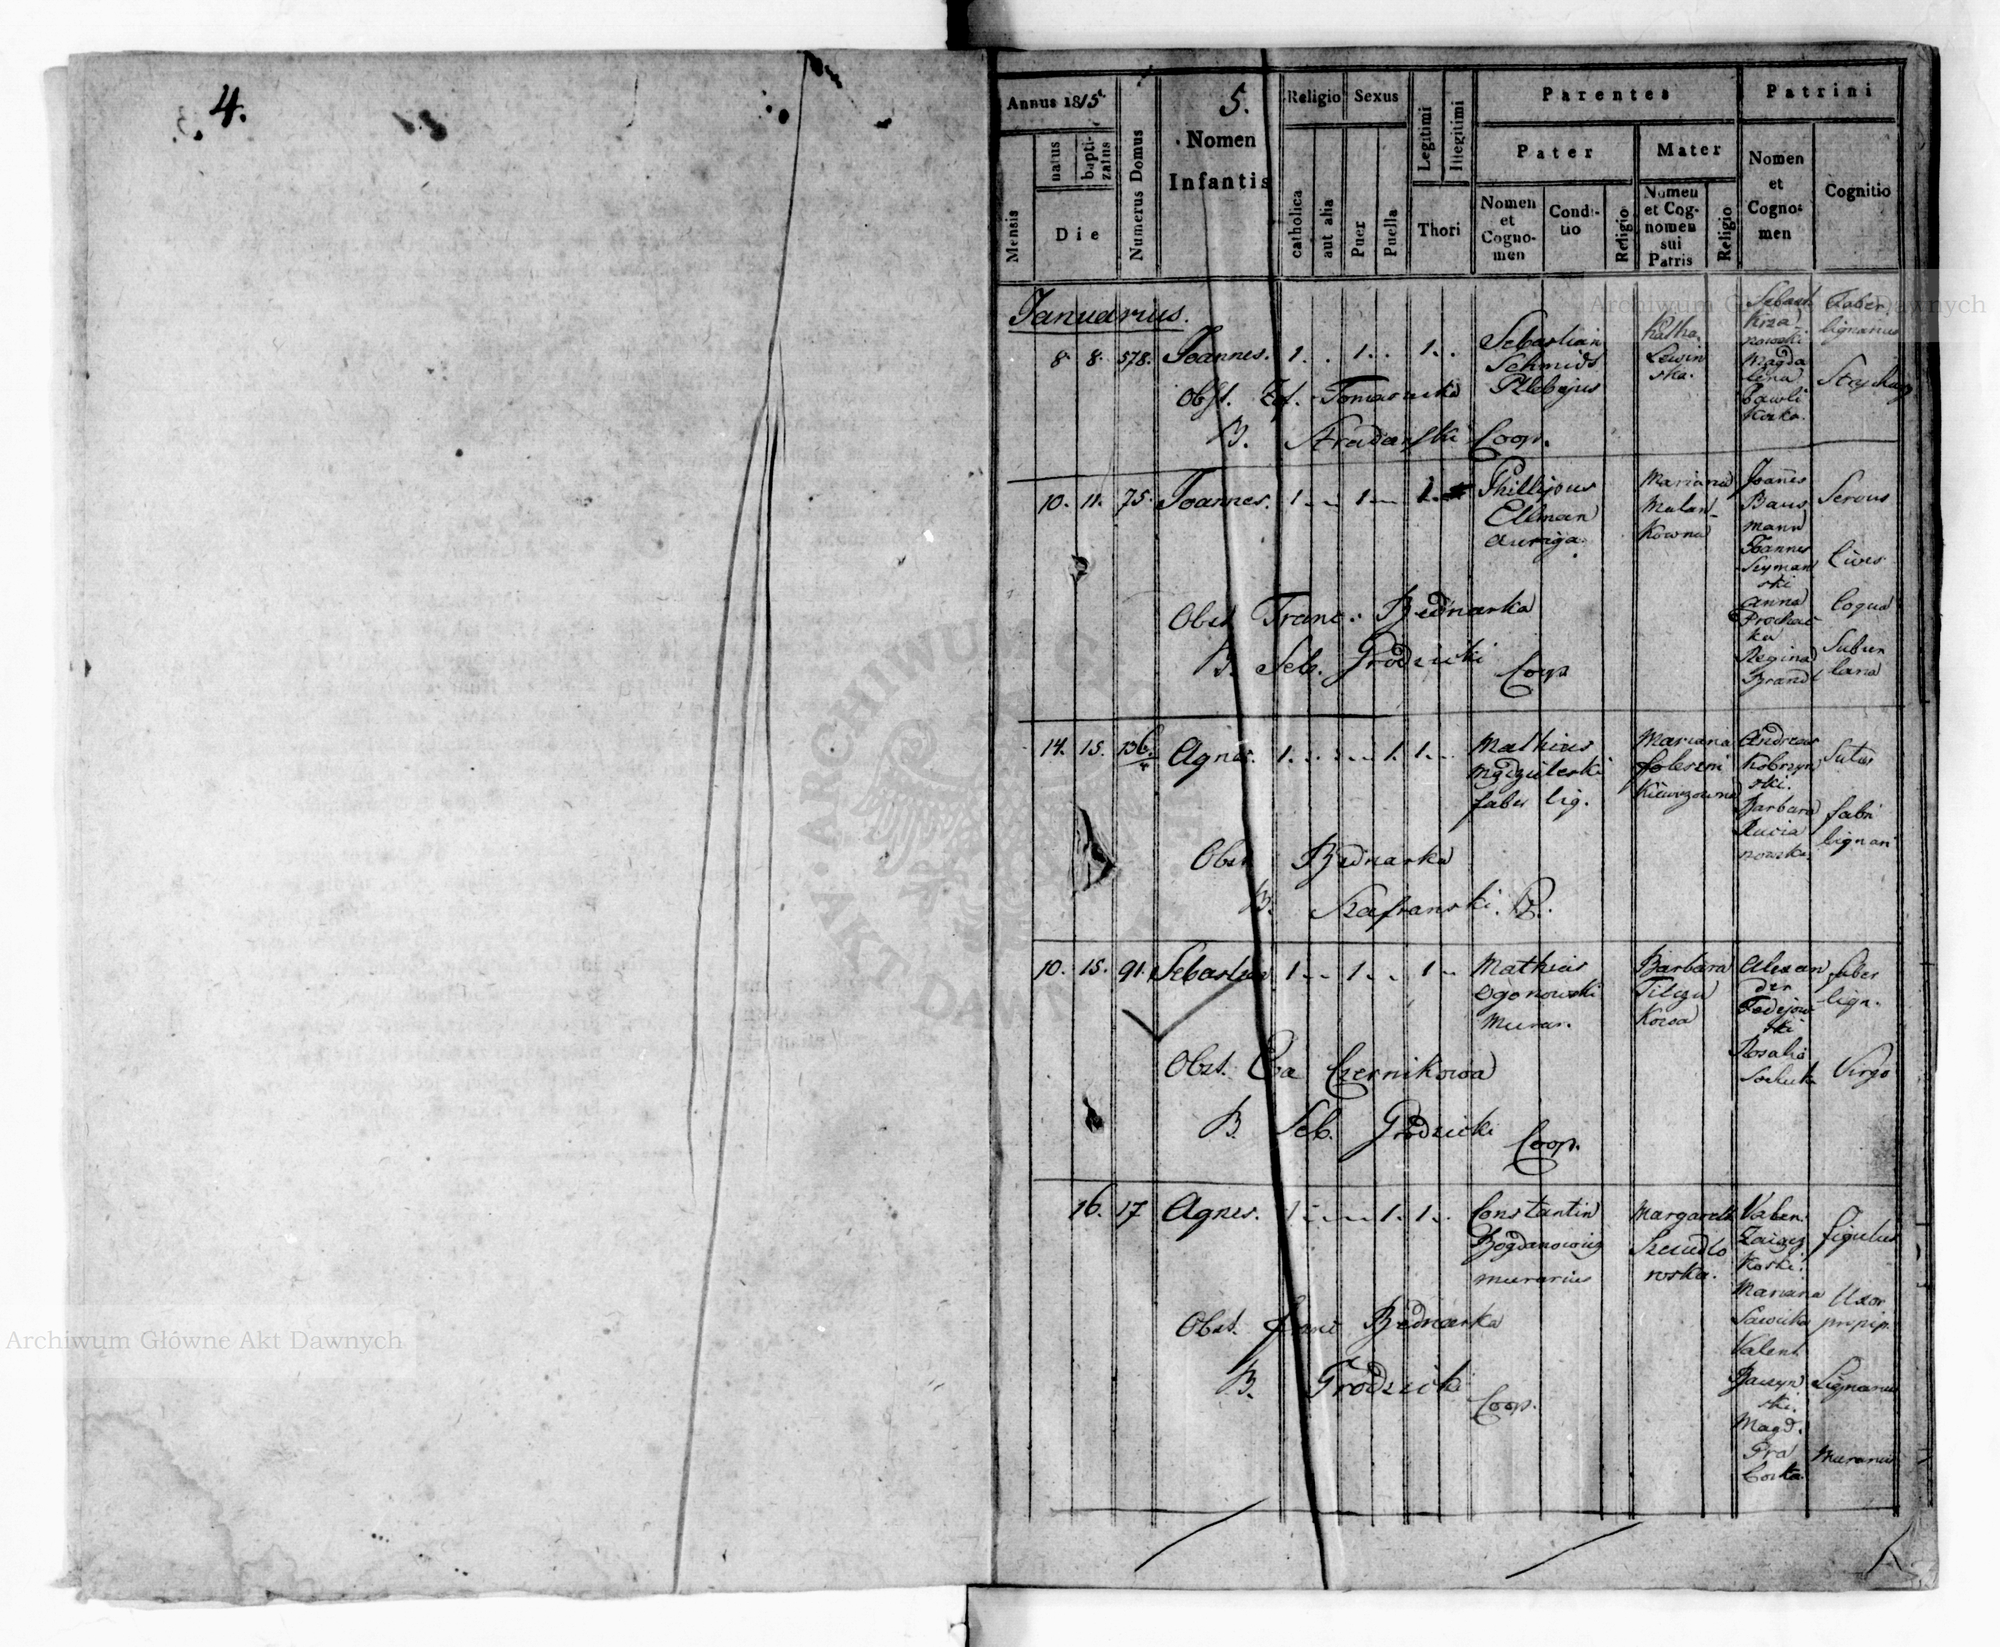 4.
5.
Annus 1815.
Mensis
natus
baptizatus
Die
Numerus Domus
Nomen
Infantis
Religio
catholica
aut alia
Sexus
Puer
Puella
Legitimi
Illegitimi
Thori
Parentes
Pater
Nomen
et
Cogno-
men
Condi-
tio
Religio
Mater
Nomen
et Cog-
nomen
sui
Patris
Religio
Patrini
Nomen
et
Cogno-
men
Cognitio
Januarius.
8. 8. 578. Joannes. 1. . 1. . 1. .
Sebastian
Schmids
Plebejus
Katha.
Lewin
ska.
Sebast.
Krza-
nowski
Magda
lena
Pawli
kowka.
Faber
lignarius
Obst. Tomaszewska
B. Stradomski Coop.
10. 11. 75. Joannes. 1. . 1. . 1.
Phillipus
Ellman
auriga.
Marianna
Mulan-
kowna
Joannes
Baus
mann
Joannes
Szyman
ski
Anna
Prochac
ka
Regina
Brandl
Servus
Cives
Coqua
Obst. Franc. Bednarka
B. Seb. Grodzicki Coop
14. 15. 136. Agnes. 1. . . . 1. 1. .
Mathias
faber lig.
Mariana
Andreas
Kobrzyn
ski.
Barbara
Rucia
nowska
Sutor
fabri
lignari
Obst. Bednarka
B. Szafranski. P.
10. 15. 91. Sebastian 1. . 1. . 1. .
Mathias
Ogonowski
Murar.
Barbara
Tilczu
kowa
Alexan
der
Fedejow
ski
Rosalia
faber
lign.
Virgo
Obst. Eva Czernikowa
B. Seb. Grodzicki Coop.
16. 17 Agnes. 1. . . . 1. 1. .
Constantin
Bogdanowicz
murarius
Margareth
Szeudlo
wska.
Valen.
Zaiacz
koski.
Mariana
Sawicka
Valent.
Baczyn
ski.
Magd.
Gra
bowka.
figulus
Uxor
Lignarius
Murarius
Obst. Franc Bednarka
B. Grodzicki Coop.
Archiwum Główne Akt Dawnych
Archiwum Główne Akt Dawnych